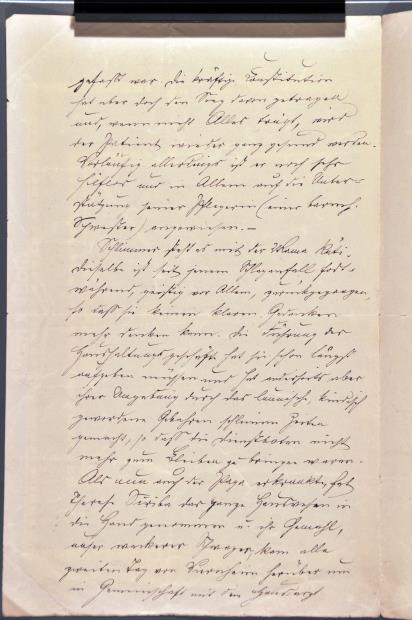 gefasst war. Die kräftige Constitution
hat aber doch den Sieg davon getragen
und, wenn nicht Alles trügt, wird
der Patient wieder ganz gesund werden.
Vorläufig allerdings ist er noch sehr
hilflos und in Allem auf die Unter-
stützung seiner Pflegerin (einer barmh.
Schwester) angewiesen. –
Schlimmer steht es mit der Mama
dieselbe ist seit jenem Schlaganfall fort-
während, geistig vor Allem, zurückgegangen,
so daß sie keinen klaren Gedanken
mehr denken kann. Die Führung der
Haushaltungsgeschäfte hat sie schon längst
aufgeben müssen und hat anderseits aber
ihrer Umgebung durch das launische, kindisch
gewordene Gebahren schlimme Zeiten
gemacht, so daß die Dienstboten nicht
mehr zum Bleiben zu bringen waren.
Als nun auch der Papa erkrankte, hat
Therese das ganze Hauswesen in
die Hand genommen u. ihr Gemahl,
unser wackerer Schwager, kam alle
zweiten Tag von herüber um
in Gemeinschaft mit dem Hausarzt